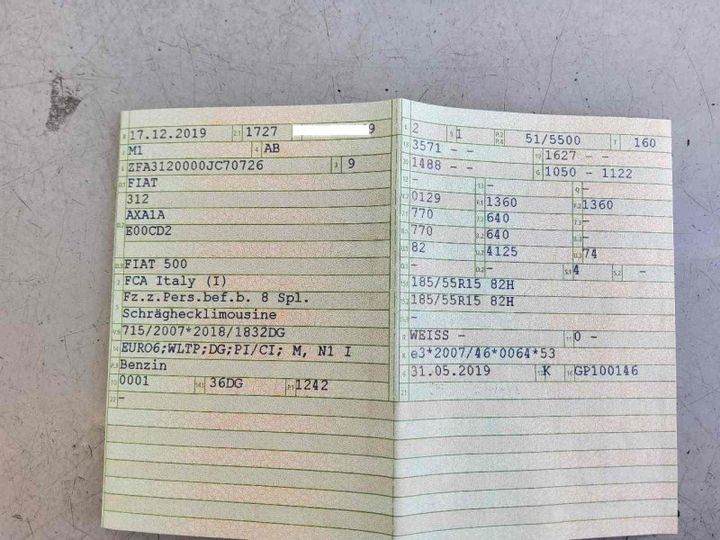 B 17.12.2019 2.1 1727 9
M1 4 AB
ZFA3120000JC70726 3 9
FIAT
312
AXA1A
E00CD2
FIAT 500
FCA Italy (I)
Fz.z.Pers.bef.b. 8 Spl.
Schräghecklimousine
715/2007*2018/1832DG
EURO6;WLTP;DG;PI/CI; M, N1 I
Benzin
0001 14.1 36DG P.1 1242
22 –
2 9 1 P.2 P.4 51/5500 T 160
18 3571 – – 19 1627 – –
20 1488 – – G 1050 – 1122
– 13 – Q –
0129 F.1 1360 F.2 1360
770 7.2 640 7.3 –
770 8.2 640 8.3 –
U.1 82 U.2 4125 U.3 74
– O.2 – S.1 4 S.2 –
185/55R15 82H
185/55R15 82H
–
R WEISS – 11 0 –
K e3*2007/46*0064*53
6 31.05.2019 17 K 16 GP100146
21